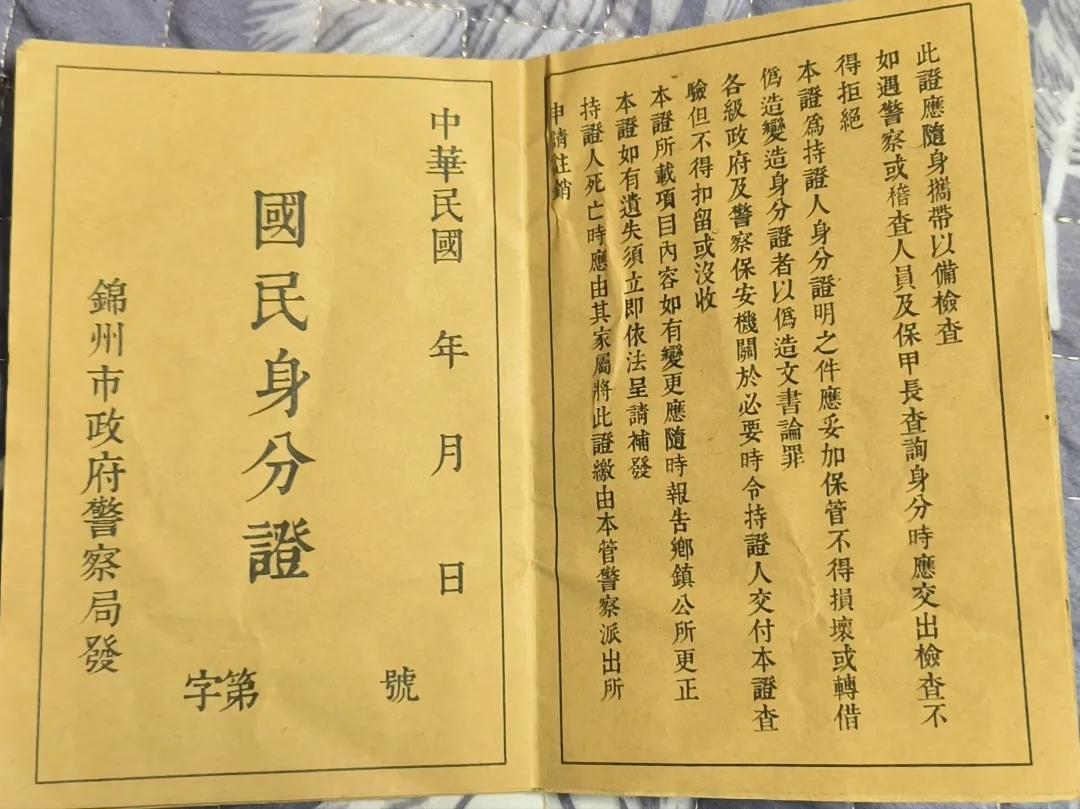 此證應隨身攜帶以備檢查
如遇警察或稽查人員及保甲長查詢身分時應交出檢查不
得拒絕
本證爲持證人身分證明之件應妥加保管不得損壞或轉借
僞造變造身分證者以僞造文書論罪
各級政府及警察保安機關於必要時令持證人交付本證查
驗但不得扣留或沒收
本證所載項目內容如有變更應隨時報告鄉鎮公所更正
本證如有遺失須立即依法呈請補發
持證人死亡時應由其家屬將此證繳由本管警察派出所
申請註銷
中華民國 年 月 日
國民身分證
錦州市政府警察局發
字第 號